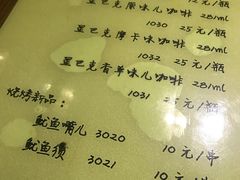 星巴克原味儿咖啡 281ml
1030 25元/瓶
星巴克摩卡味咖啡 281ml
1032 25元/瓶
星巴克香草味儿咖啡 281ml
1031 25元/瓶
烧烤新品:
鱿鱼嘴儿 3020 10元/串
鱿鱼须 3021 10元/串